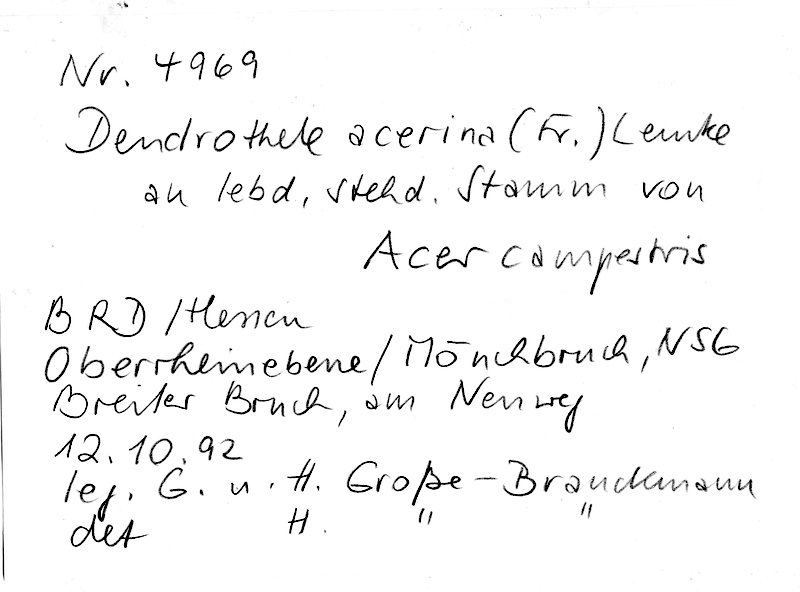 Nr. 4969
Dendrothele acerina (Fr.) Lemke
an lebd, stehd. Stamm von
Acer campestris
BRD / Hessen
Oberrheinebene / Mönchbruch, NSG
Breiter Bruch, am Neuweg
12.10.92
leg. G. u. H. Große-Brauckmann
det H. " "